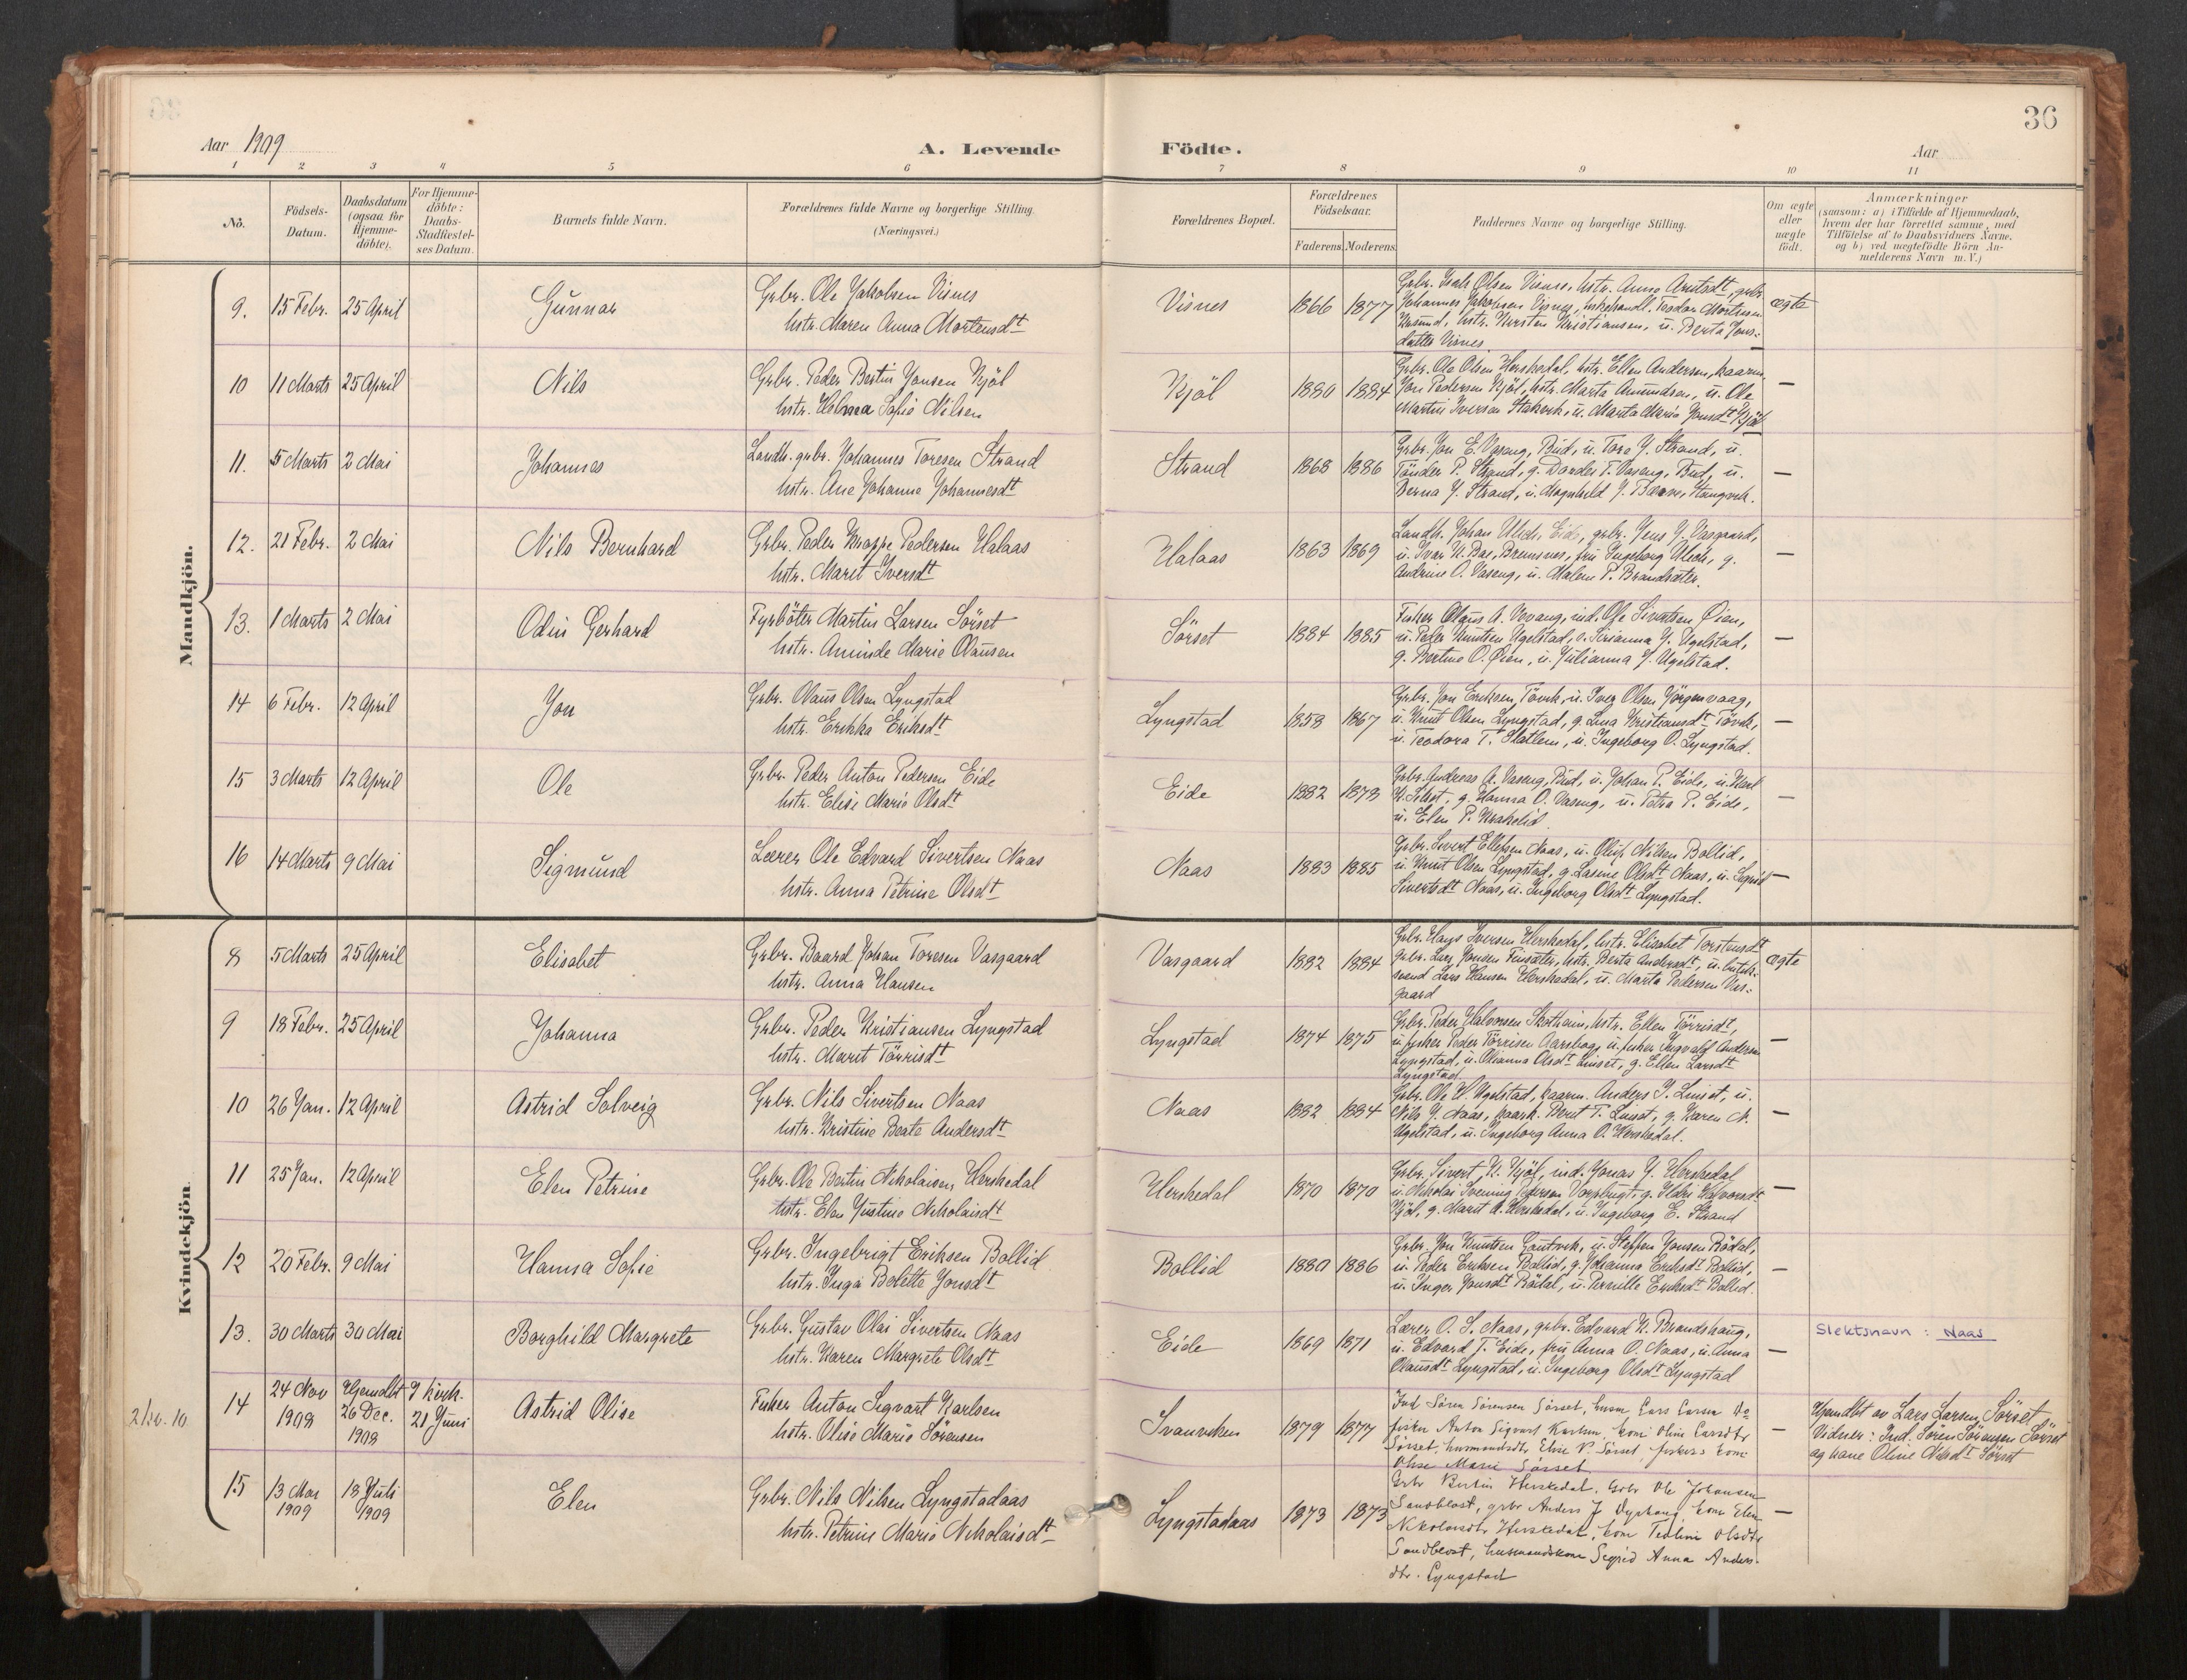 36
Aar 1909
A. Levende Födte.
Aar
1 2 3 4 5 6 7 8 9 10 11
No.
Födsels-Datum.
Daabsdatum (ogsaa for Hjemme-döbte).
For Hjemme-döbte: Daabs-Stadfæstel-ses Datum.
Barnets fulde Navn.
Forældrenes fulde Navne og borgerlige Stilling. (Næringsvei.)
Forældrenes Bopæl.
Forældrenes Födselsaar.
Faderens. Moderens.
Faddernes Navne og borgerlige Stilling.
Om ægte eller uægte födt.
Anmærkninger
(saasom: a) i Tilfælde af Hjemmedaab,
hvem der har forrettet samme, med
Tilföielse af to Daabsvidners Navne,
og b) ved uægtefödte Börn An-
melderens Navn m. V.)
Mandkjön.
9. 15 Febr. 25 April Gunnar
Grbr. Ole Jakobsen Visnes
hstr. Maren Anna Mortensdt
Visnes 1866 1877
Grbr. Isak Olsen Visnes, hstr. Anne Arstadt, grbr.
Johannes Jakobsen Visnes, Teodor Mortensen
hstr. Kirsten Kristiansen, u. Berta Jons-
datter Visnes
ægte
10 11 Marts 25 April Nils
Grbr. Peder Bertin Jonsen Kjöl
hstr. Helmea Sofie Nilsen
Kjöl 1880 1884
Grbr. Ole Olsen Herskedal, hstr. Ellen Andersen, kaarm.
Jon Pedersen Kjöl, hstr. Marta Amundsen, u. Ole
Martin Iversen Stakvik, u. Marta Marie Jonsdt Kjöl
—
11. 5 Marts 2 Mai Johannes
Landh. grbr. Johannes Toresen Strand
hstr. Ane Johanna Johannesdt
Strand 1868 1886
Grbr. Jon E. Vaseng, Bud, u. Tore J. Strand, u.
Tönder P. Strand, g. Dordei T. Vaseng, Bud, u.
Berna J. Strand, u. Magnhild J. Bæren, Stangvik.
—
12. 21 Febr. 2 Mai Nils Bernhard
Grbr. Peder Knoppe Pedersen Halaas
hstr. Marit Iversdt
Halaas 1863 1869
Landh. Johan Ulich, Eide, grbr. Jens J. Vasgaard,
u. Ivar K. Bae, Bremsnes, fru Ingeborg Ulich, g.
Andrine O. Vaseng, u. Malene P. Brandsæter.
—
13. 1 Marts 2 Mai Odin Gerhard
Fyrböter Martin Larsen Sörset
hstr. Aminde Marie Olausen
Sörset 1884 1885
Fisker Olaus A. Vevang, ind. Ole Sivertsen Øien,
u. Peder Knutsen Ugelstad, Sirianna J. Ugelstad,
g. Bertine O. Øien, u. Julianna J. Ugelstad.
—
14 6 Febr. 12 April Jon
Grbr. Olaus Olsen Lyngstad
hstr. Erikka Eriksdt
Lyngstad 1858 1867
Grbr. Jon Eriksen Tövik, u. Iver Olsen Jörgenvaag,
u. Knut Olsen Lyngstad, g. Lina Kristiansdt Tövik,
u. Teodora T. Slatlem, u. Ingeborg O. Lyngstad.
—
15 3 Marts 12 April Ole
Grbr. Peder Anton Pedersen Eide
hstr. Elisi Marie Olsdt
Eide 1882 1878
Grbr. Andreas A. Vaseng, Bud, u. Johan P. Eide, u. Karl
g. Hanna O. Vaseng, u. Petra P. Eide,
u. Elen P. Krakelid
—
16 14 Marts 9 Mai Sigmund
Lærer Ole Edvard Sivertsen Naas
hstr. Anna Petrine Olsdt
Naas 1883 1885
Grbr. Sivert Ellefsen Naas, u. Oluf Nilsen Bollid,
u. Knut Olsen Lyngstad, g. Lasine Olsdt Naas, u. Sigrid
Sivertsdt Naas, u. Ingeborg Olsdt Lyngstad.
—
Kvindekjön
8 5 Marts 25 April Elisabet
Grbr. Baard Johan Toresen Vasgaard
hstr. Anna Hansen
Vasgaard 1882 1884
Grbr. Hans Iversen Herskedal, hstr. Elisabet Torstensdt
grbr. Lars Jonsen Finsæter, hstr. Berta Andersdt, u. butik-
svend Lars Hansen Herskedal, u. Marta Pedersen Vas-
gaard
ægte
9 18 Febr. 25 April Johanna
Grbr. Peder Kristiansen Lyngstad
hstr. Marit Törrisdt
Lyngstad 1874 1875
Grbr. Peder Halvorsen Skothein, hstr. Ellen Törrisdt,
u. fisker Peder Törrisen Aarsbog, u. fisker Ingvald Andersen
Lyngstad, u. Olianna Olsdt Linset, g. Ellen Larsdt
Lyngstad
—
10 26 Jan. 12 April Astrid Solveig
Grbr. Nils Sivertsen Naas
hstr. Kristine Beate Andersdt
Naas 1882 1884
Grbr. Ole H. Ugelstad, kaarm. Anders J. Linset, u.
Nils J. Naas, kaark. Berit T. Linset, g. Karen N.
Ugelstad, u. Ingeborg Anna O. Herskedal.
—
11 25 Jan. 12 April Elen Petrine
Grbr. Ole Bertin Nikolaisen Herskedal
hstr. Elen Justine Nikolaisdt
Herskedal 1870 1870
Grbr. Sivert K. Kjöl, ind. Jonas J. Herskedal
u. Nikolai Ivening Iversen Vorpbugt, g. Ildri Halvorsdt
Kjöl, g. Marit A. Herskedal, u. Ingeborg E. Strand
—
12 20 Febr. 9 Mai Hanna Sofie
Grbr. Ingebrigt Eriksen Bollid
hstr. Inga Bolette Jonsdt
Bollid 1880 1886
Grbr. Jon Knutsen Gautvik, u. Steffen Jonsen Rödal,
u. Peder Eriksen Bollid, g. Johanna Eriksdt Bollid,
u. Inger Jonsdt Rödal, u. Pernille Eriksdt Bollid.
—
13. 30 Marts 30 Mai Borghild Margrete
Grbr. Gustav Olai Sivertsen Naas
hstr. Karen Margrete Olsdt
Eide 1869 1871
Lærer O. S. Naas, grbr. Edvard K. Brandshaug,
u. Edvard J. Eide, fru Anna O. Naas, u. Anna
Olausdt Lyngstad, u. Ingeborg Olsdt Lyngstad
—
Slektsnavn: Naas
2/10.10
14 24 Nov 1908 Hjemdbt 26 Dec. 1908 I kirk. 21 Juni Astrid Olise
Fisker Anton Sigvart Karlsen
hstr. Olise Marie Sörensen
Svanviken 1879 1877
Ind Sören Sörensen Sörset, husm Lars Larsen Do
fisker Anton Sigvart Karlsen, kone Oline Larsdtr
Sörset, husmandsdtr Elise N. Sörset, fiskers kone
Olise Marie Sörset
—
Hjemdbt av Lars Larsen Sörset
Vidner: Ind. Sören Sörensen Sörset
og kone Oline Nilsdt Sörset
15 13 Mai 1909 18 Juli 1909 Elen
Grbr. Nils Nilsen Lyngstadaas
hstr. Petrine Marie Nikolaisdt
Lyngstadaas 1873 1873
Grbr Bertin Herskedal, Grbr Ole Johansen
Sandblost, grbr Anders J Dyrhaug, kone Elen
Nikolaisdtr Herskedal, kone Teoline Olsdtr
Sandblost, husmandskone Sigrid Anna Anders-
dtr. Lyngstad
—